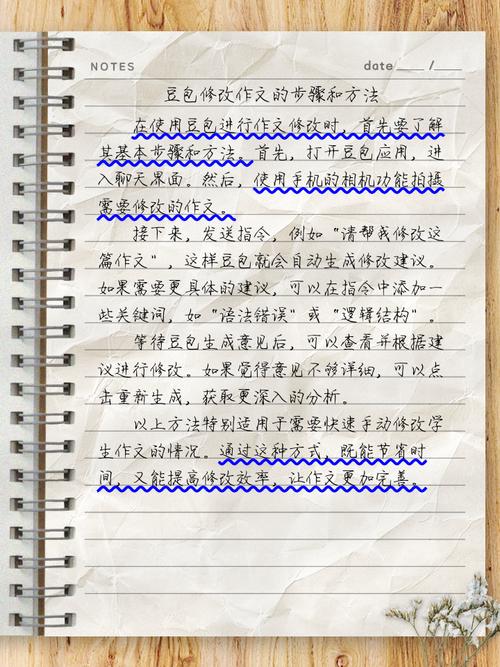 NOTES date ____ / ____
豆包修改作文的步骤和方法
在使用豆包进行作文修改时，首先要了解
其基本步骤和方法。首先，打开豆包应用，进
入聊天界面。然后，使用手机的相机功能拍摄
需要修改的作文。
接下来，发送指令，例如“请帮我修改这
篇作文”，这样豆包就会自动生成修改建议。
如果需要更具体的建议，可以在指令中添加一
些关键词，如“语法错误”或“逻辑结构”。
等待豆包生成意见后，可以查看并根据建
议进行修改。如果觉得意见不够详细，可以点
击重新生成，获取更深入的分析。
以上方法特别适用于需要快速手动修改学
生作文的情况。通过这种方式，既能节省时
间，又能提高修改效率，让作文更加完善。